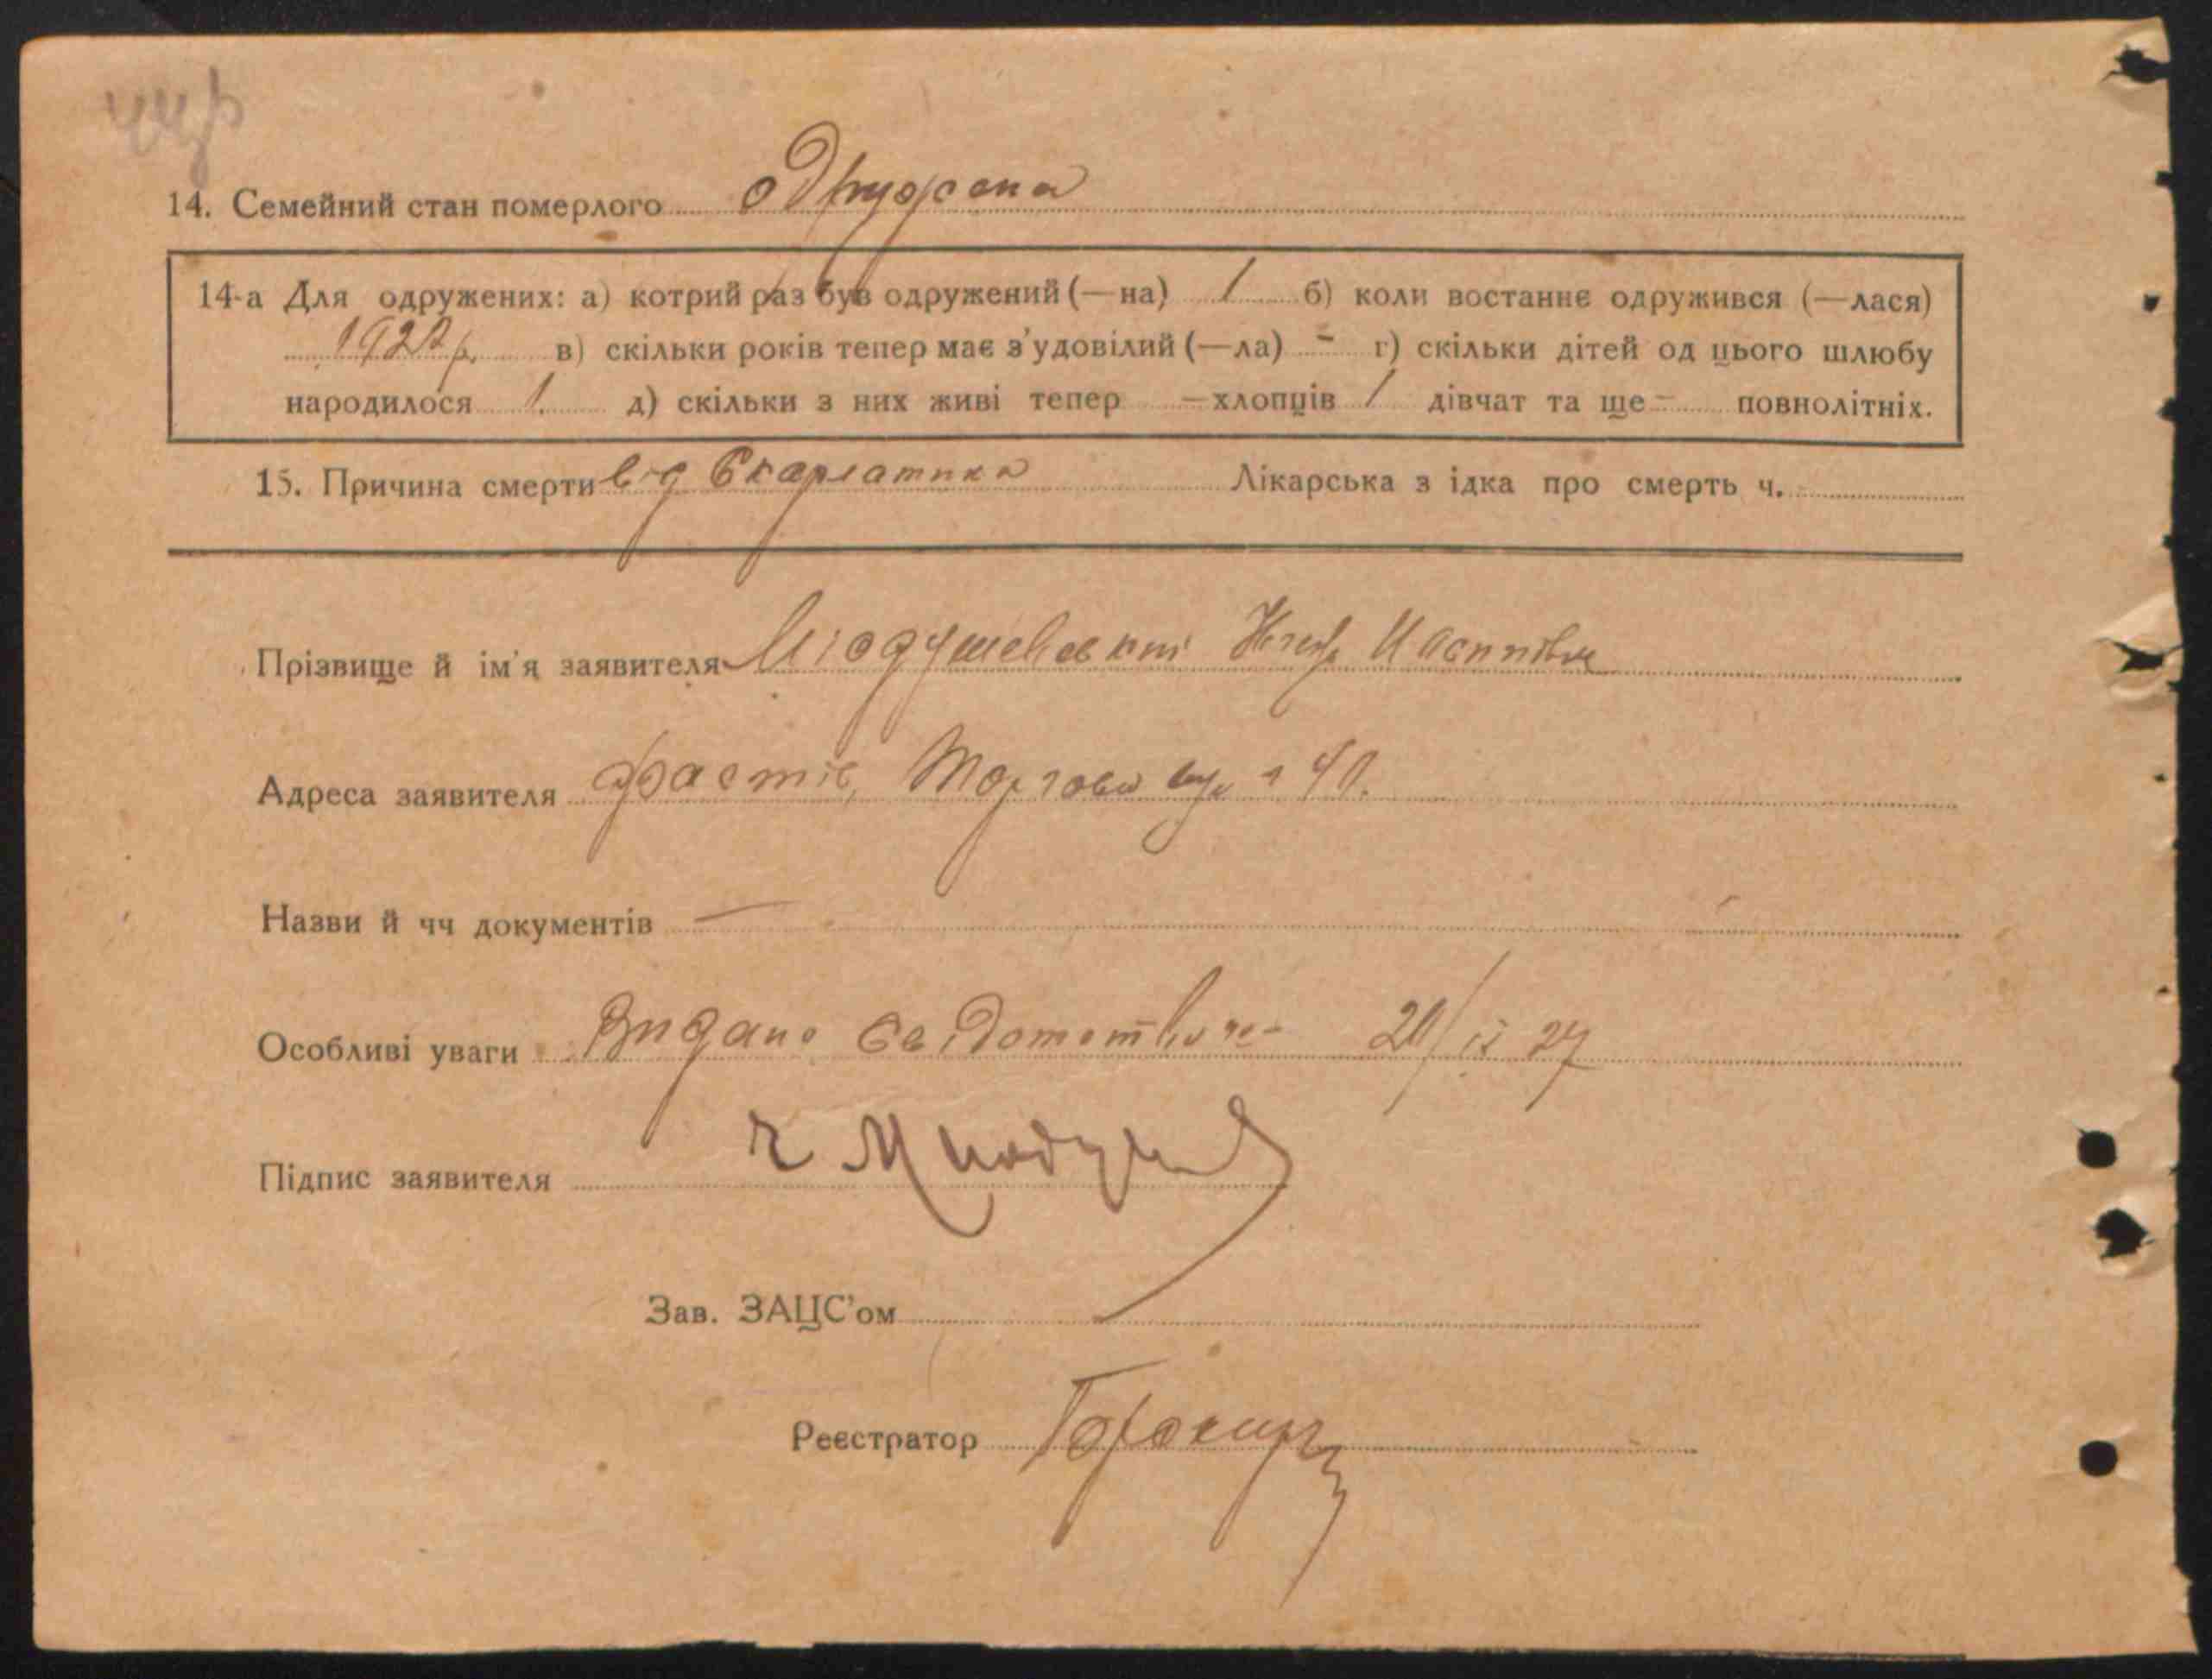 14. Семейний стан померлого одружена
14-а Для одружених: а) котрий раз був одружений (—на) 1 б) коли востаннє одружився (—лася)
192 р. в) скільки років тепер має з'удовілий (—ла) - г) скільки дітей од цього шлюбу
народилося 1. д) скільки з них живі тепер — хлопців 1 дівчат та ще - повнолітніх.
15. Причина смерти від Скарлатини Лікарська з ідка про смерть ч.
Прізвище й ім'я заявителя Міодушевський
Адреса заявителя Фастів, Торгова вул
Назви й чч документів —
Особливі уваги Видано 27
Підпис заявителя
Зав. ЗАЦС'ом
Реєстратор